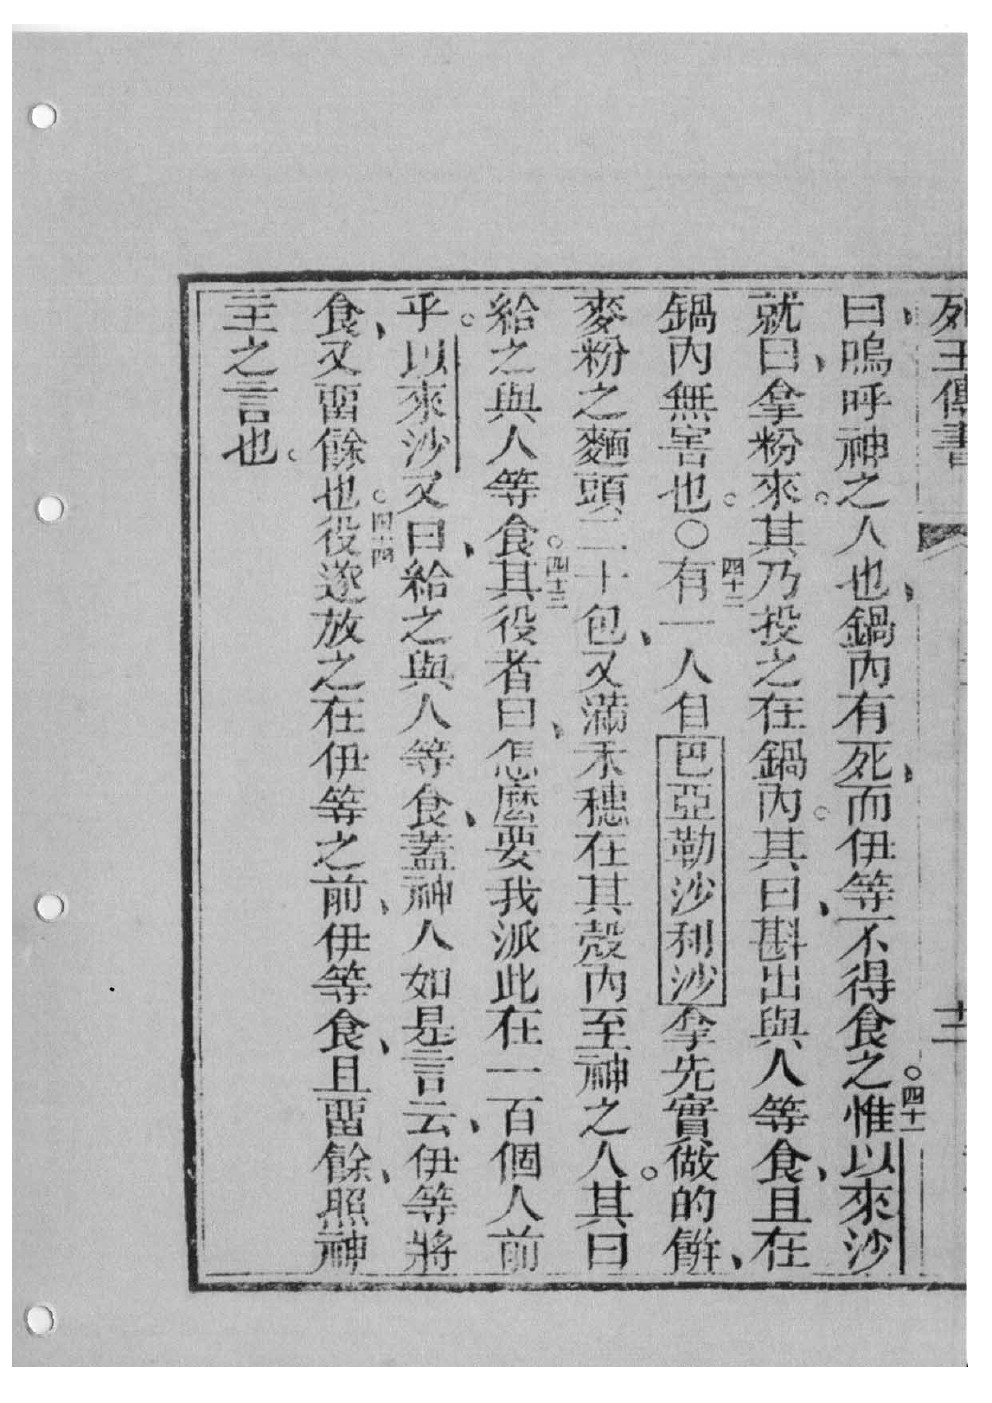 王傳書 十二
曰、嗚呼神之人也、鍋內有死、而伊等不得食之。四十一惟以來沙
就曰、拿粉來。其乃投之在鍋內。其曰、斟出與人等食、且在
鍋內無害也。○四十二有一人自巴亞勒沙利沙拿先實做的餅、
麥粉之麵頭二十包、又滿禾穗在其殼內至神之人。其曰
給之與人等食。四十三其役者曰、怎麼要我派此在一百個人前
乎。以來沙又曰、給之與人等食、蓋神人如是言云、伊等將
食、又畱餘也。四十四役遂放之在伊等之前、伊等食、且畱餘、照神
主之言也。